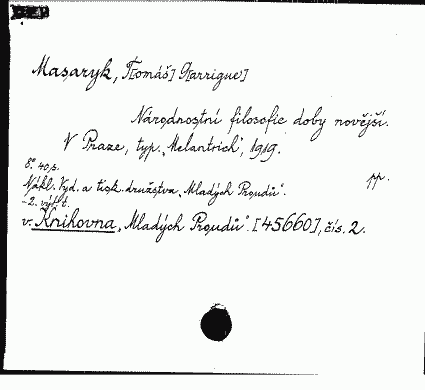 Masaryk, T[omáš] G[arrigue]
Národnostní filosofie doby novější.
V Praze, typ. „Melantrich", 1919.
8° 40 s.
pp.
Nákl. Vyd. a tisk. družstva „Mladých Proudů".
- 2. výtt.
v. Knihovna „Mladých Proudů". [45660], čís. 2.